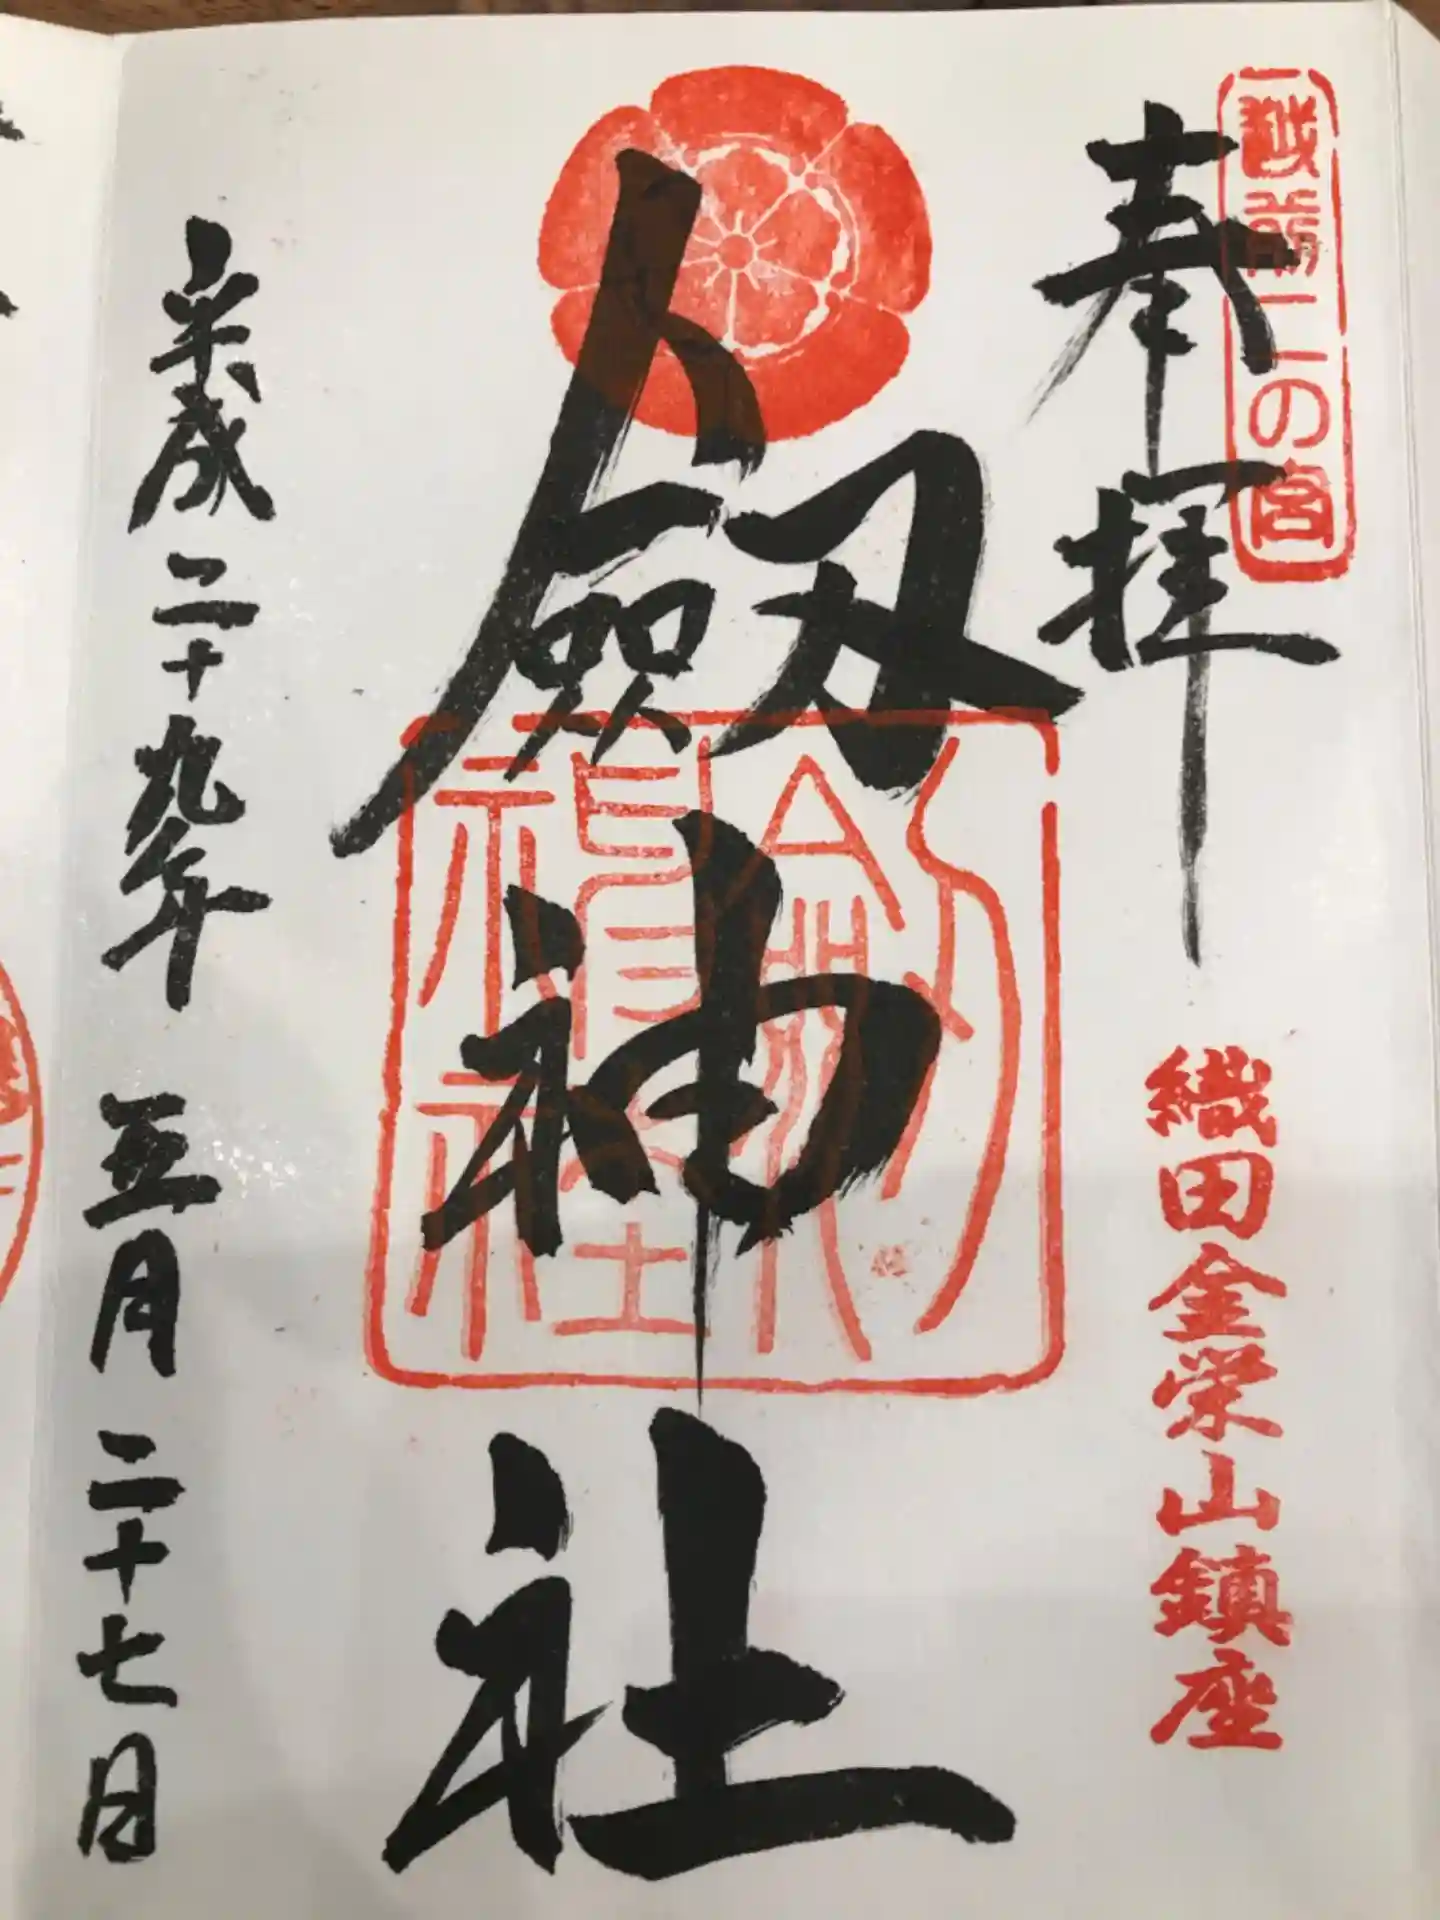 越前二の宮
奉拝
織田金栄山鎮座
劔神社
劔神社
平成二十九年 五月 二十七日